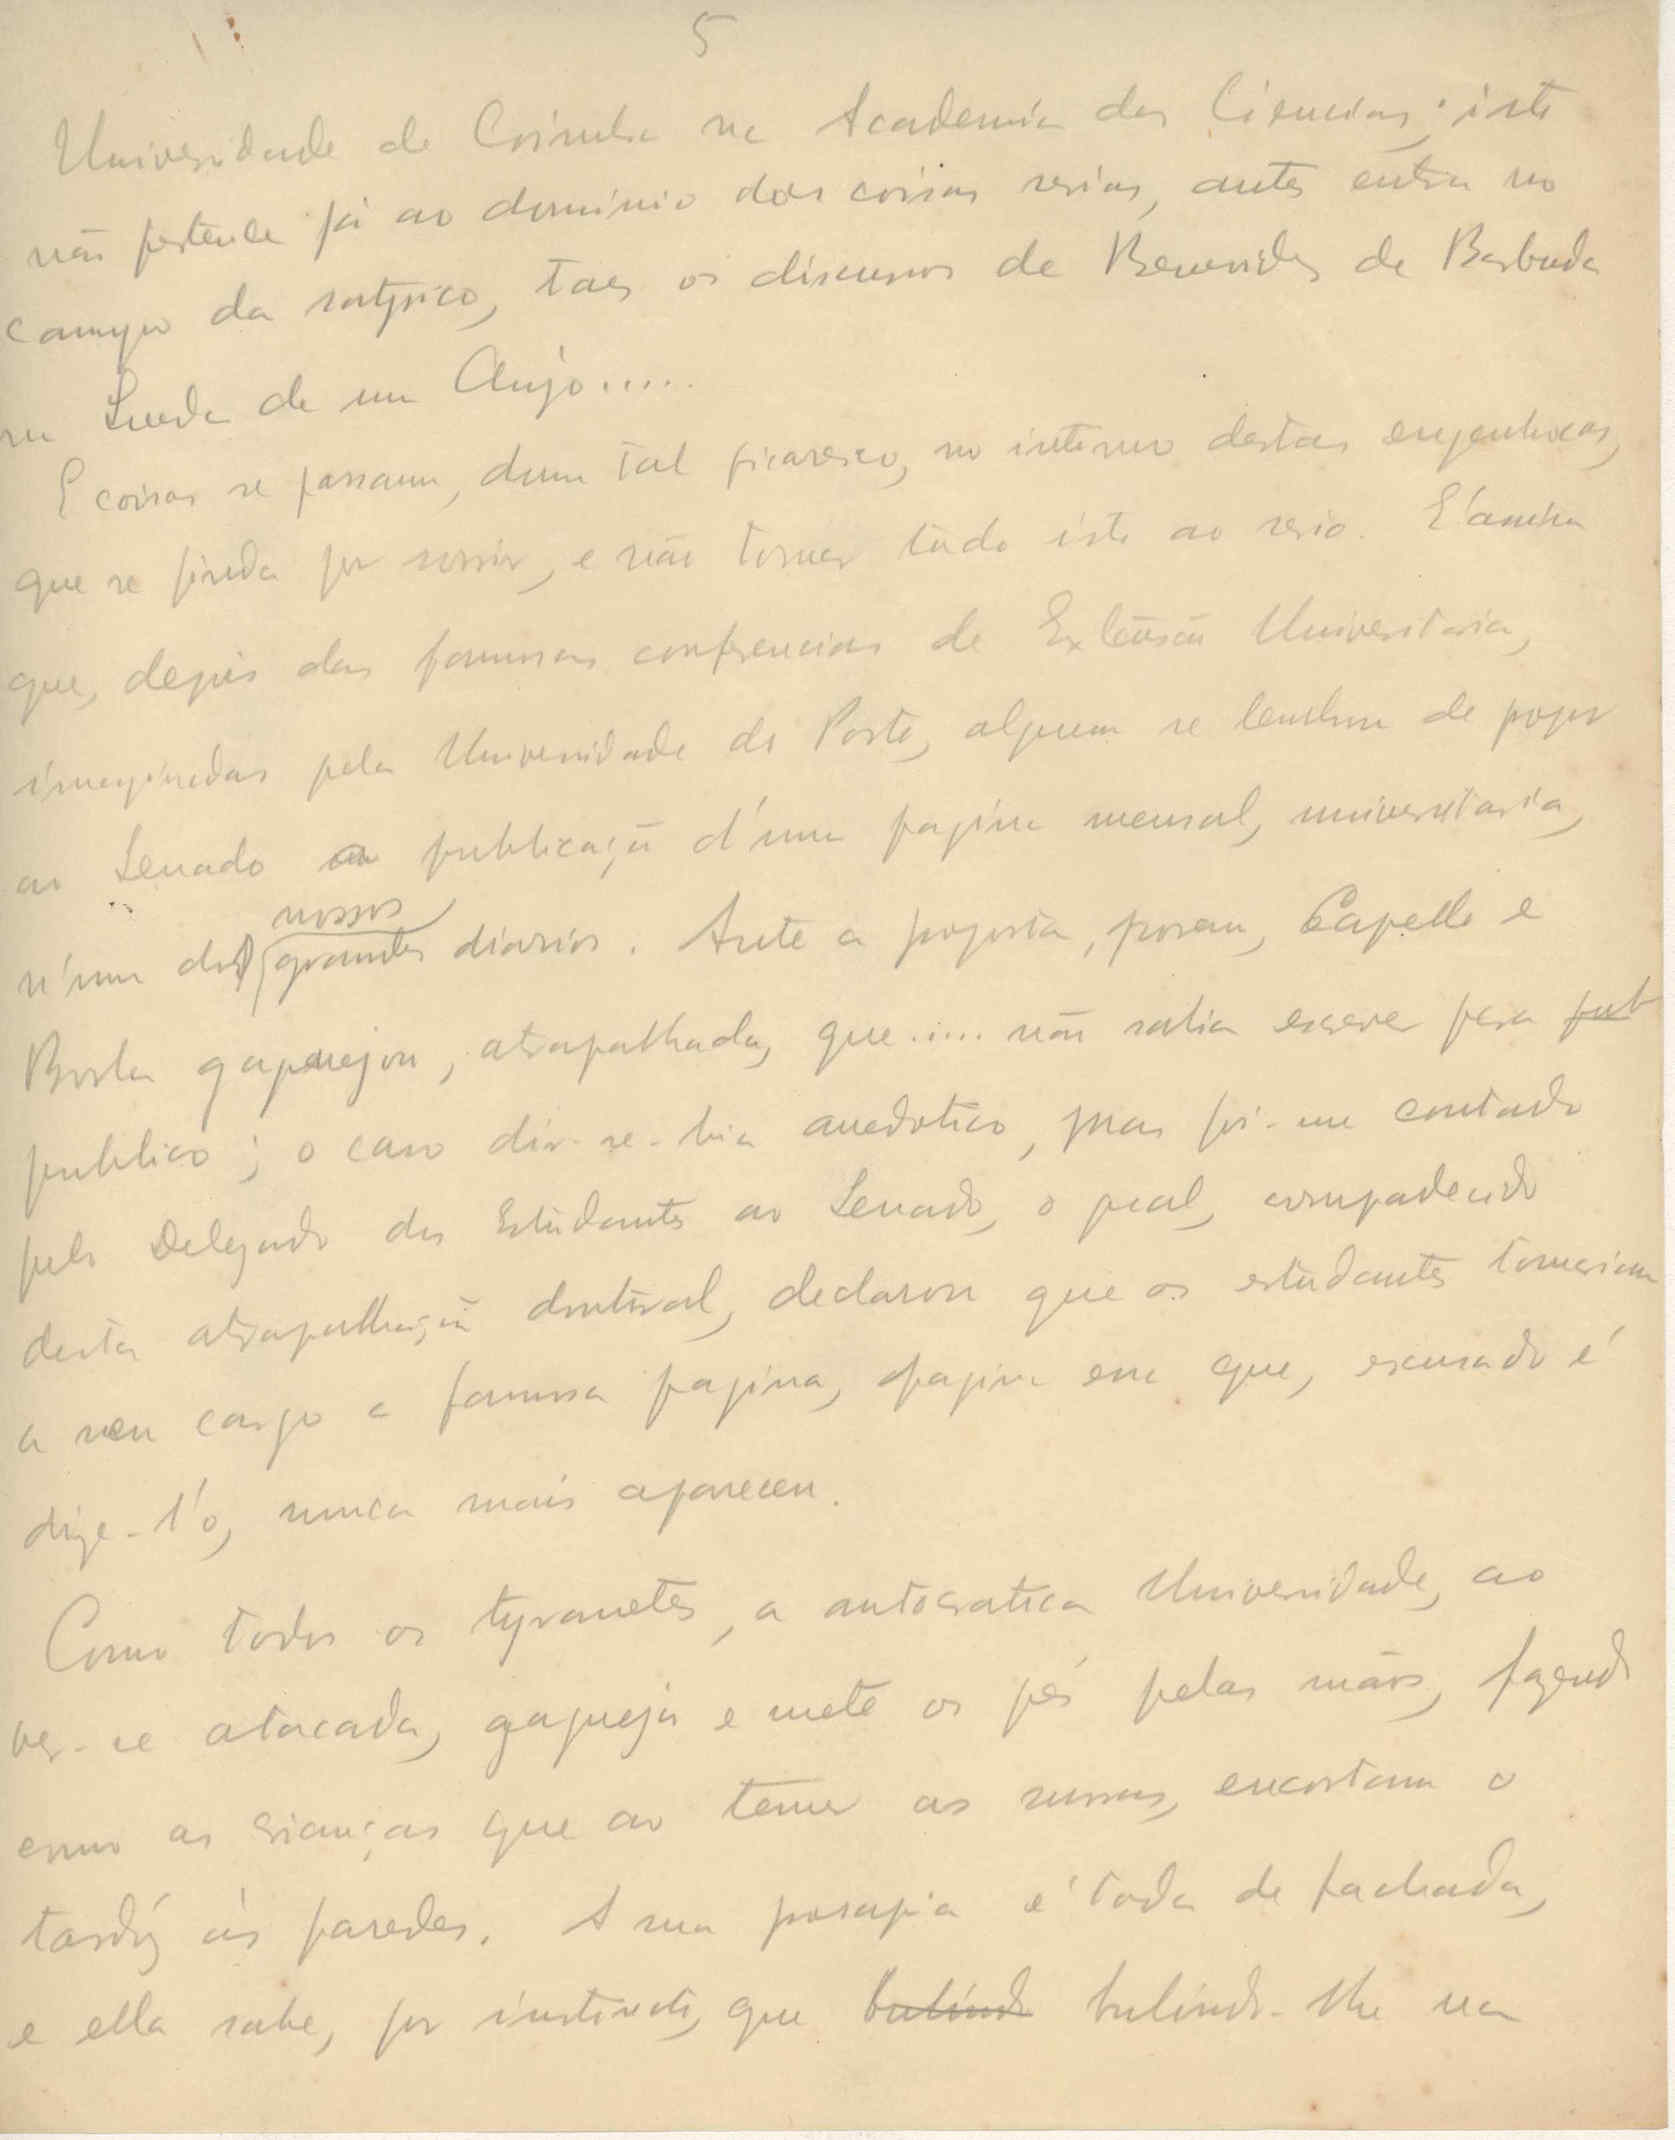 5
Universidade de Coimbra na Academia das Ciencias; isto
não pertence já ao dominio das coisas serias, antes entra no
campo da satyrico, taes os discursos de Benevides de Barbuda
na Queda de um Anjo.....
E coisas se passam, dum tal picaresco, no interno destas engenhocas,
que se finda por sorrir, e não tomar tudo isto ao serio. E' assim
que, depois das famosas conferencias de Extensão Universitaria,
imaginadas pela Universidade do Porto, alguem se lembrou de propor
ao Senado a publicação d'uma pagina mensal, universitaria,
nossos
n'um dos grandes diarios. Ante a proposta, porem, Capello e
Borla gaguejou, atrapalhada, que..... não sabia escrever para pub
publico; o caso dir-se-hia anedotico, mas foi-me contado
pelo Delegado dos Estudantes ao Senado, o qual, compadecido
desta atrapalhação doutoral, declarou que os estudantes tomariam
a seu cargo a famosa pagina, pagina em que, escusado é
dize-l'o, nunca mais apareceu.
Como todos os tyranetes, a autocratica Universidade, ao
ver-se atacada, gagueja e mete os pés pelas mãos, fazendo
como as crianças que ao temer as surras, encostam o
tardóz ás paredes. A sua prosapia é toda de fachada,
e ella sabe, por instincto, que bulindo bulindo-lhe na